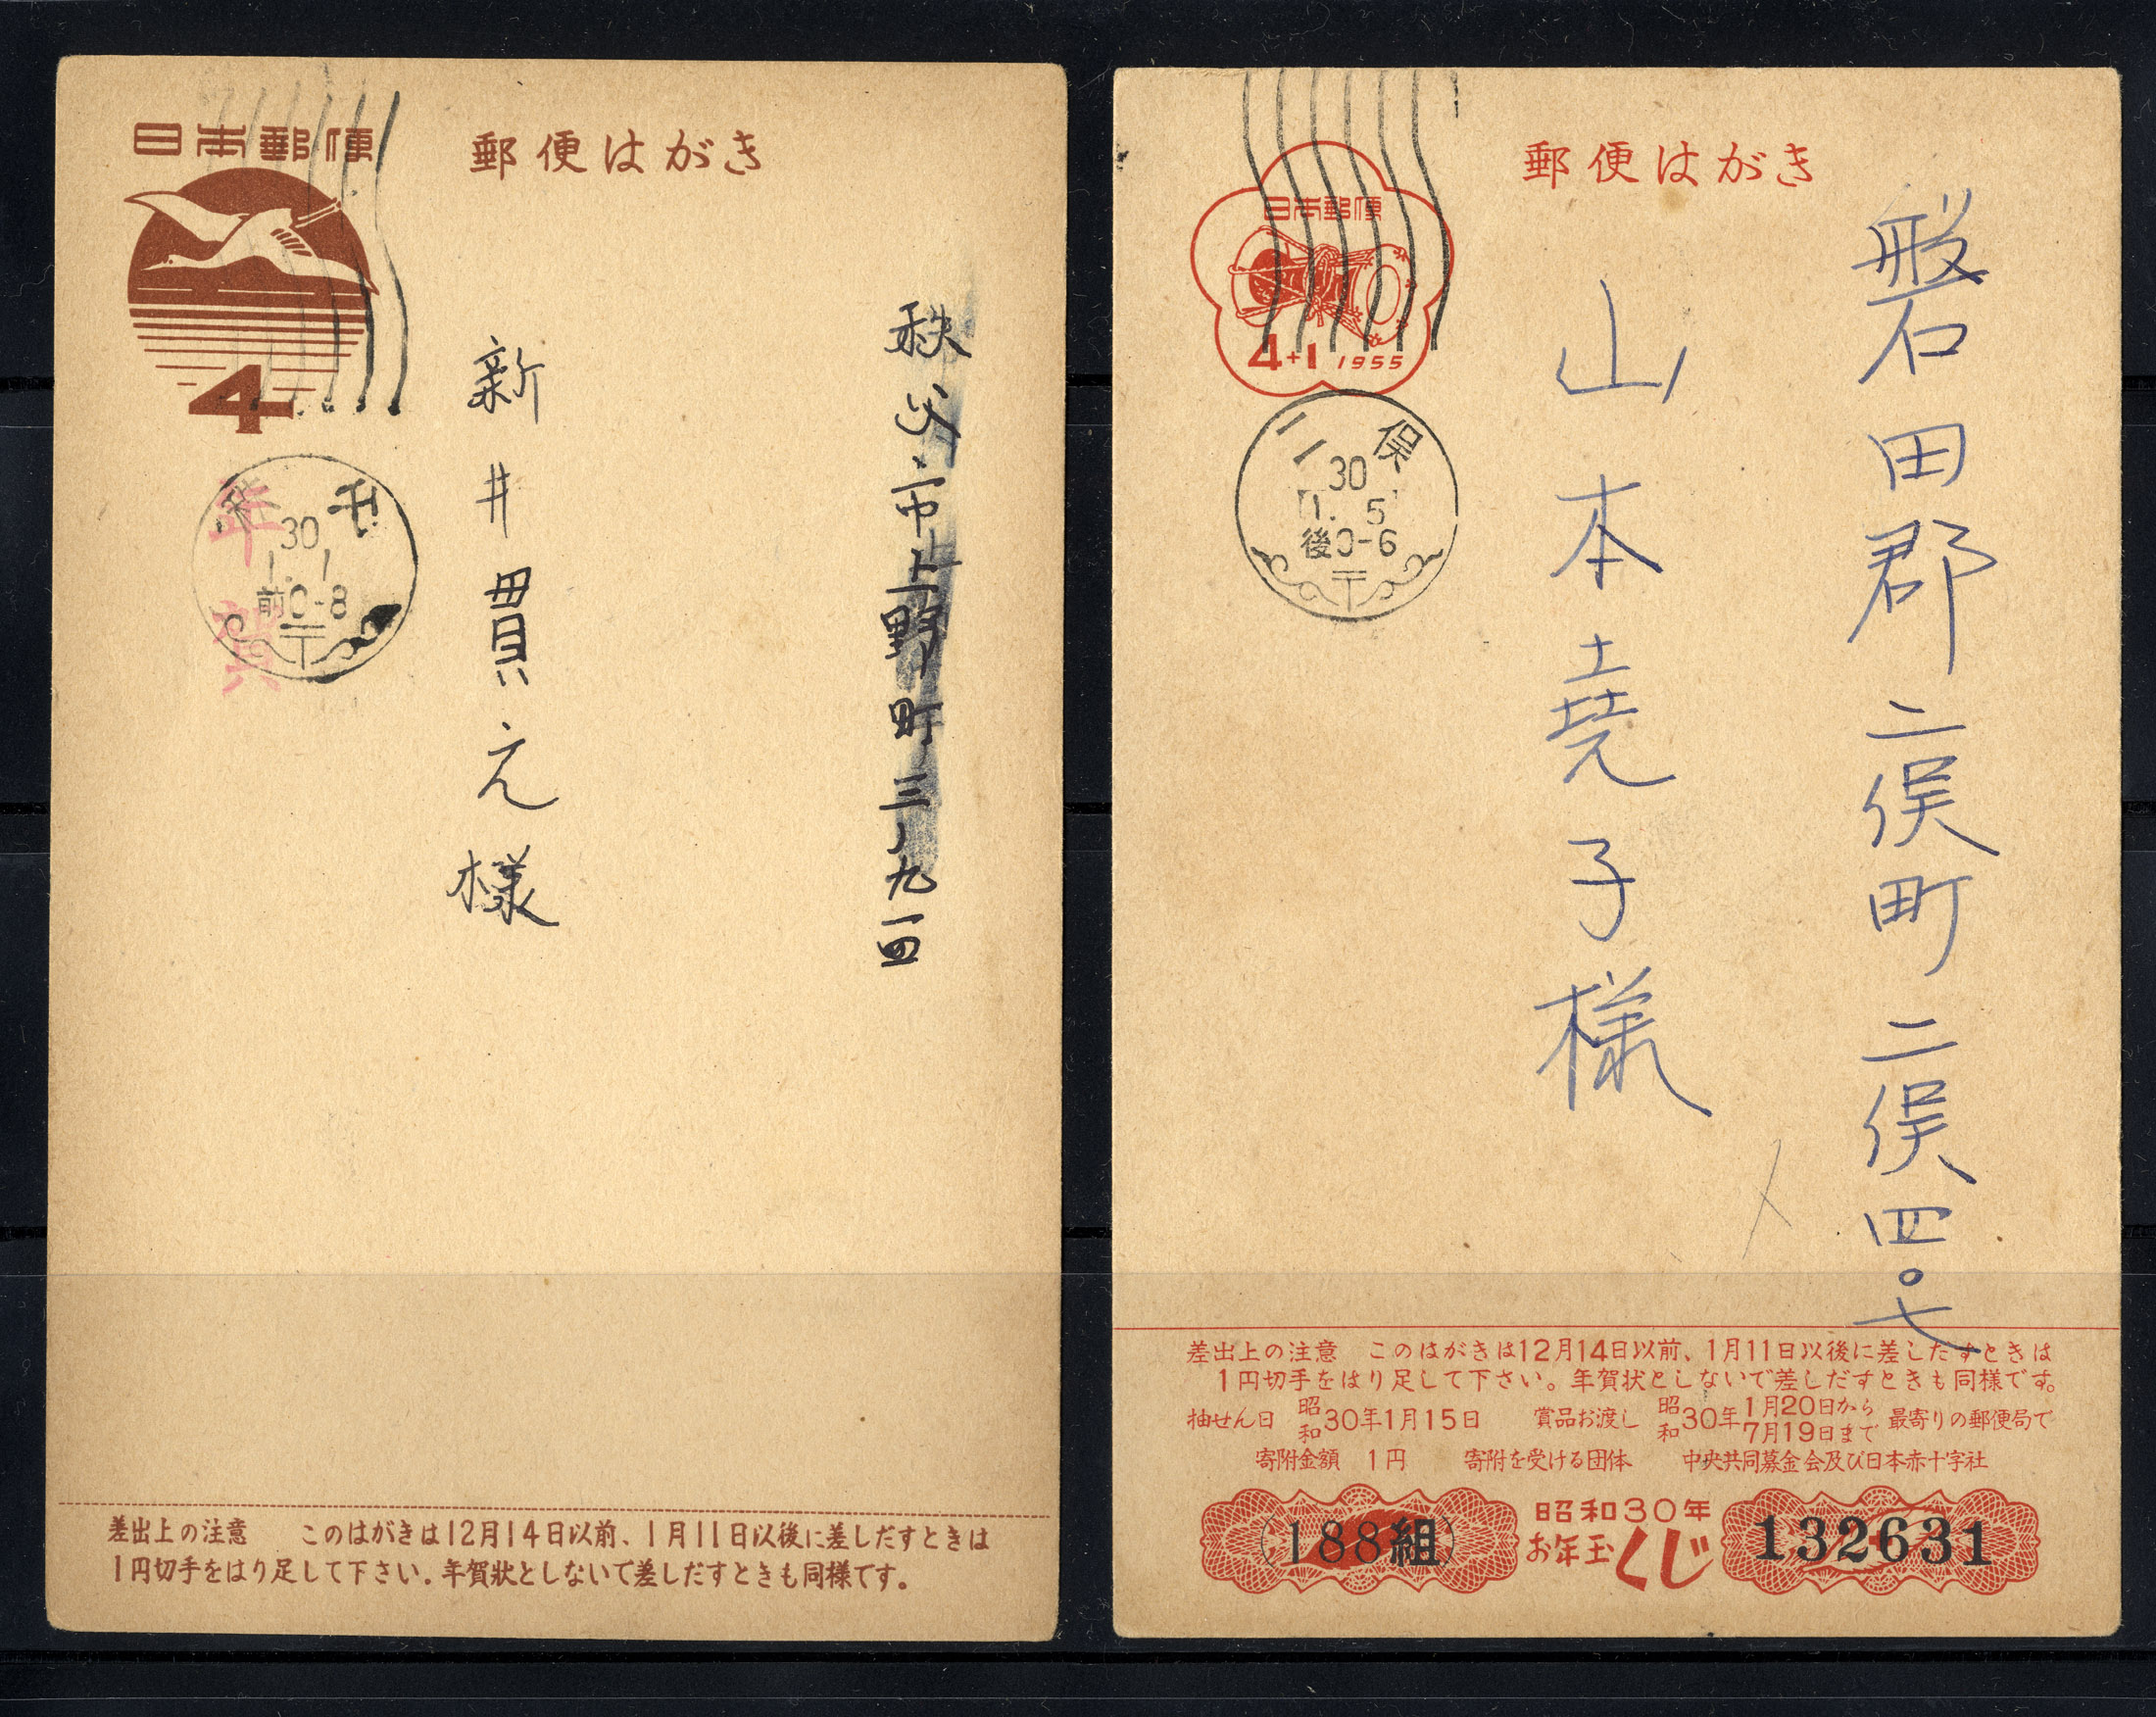 日本郵便
郵便はがき
4
年賀
30
1.1
前0-8
〒
秩父市上野町三ノ九一四
新井貫之様
差出上の注意　このはがきは12月14日以前、1月11日以後に差しだすときは
1円切手をはり足して下さい。年賀状としないで差しだすときも同様です。
郵便はがき
日本郵便
4+1 1955
二俣
30
1. 5
後0-6
〒
磐田郡二俣町二俣四〇七
山本堯子様
差出上の注意　このはがきは12月14日以前、1月11日以後に差しだすときは
1円切手をはり足して下さい。年賀状としないで差しだすときも同様です。
抽せん日　昭和30年1月15日　賞品お渡し　昭和30年1月20日から7月19日まで最寄りの郵便局で
寄附金額　1円　寄附を受ける団体　中央共同募金会及び日本赤十字社
188組
昭和30年
お年玉くじ
132631